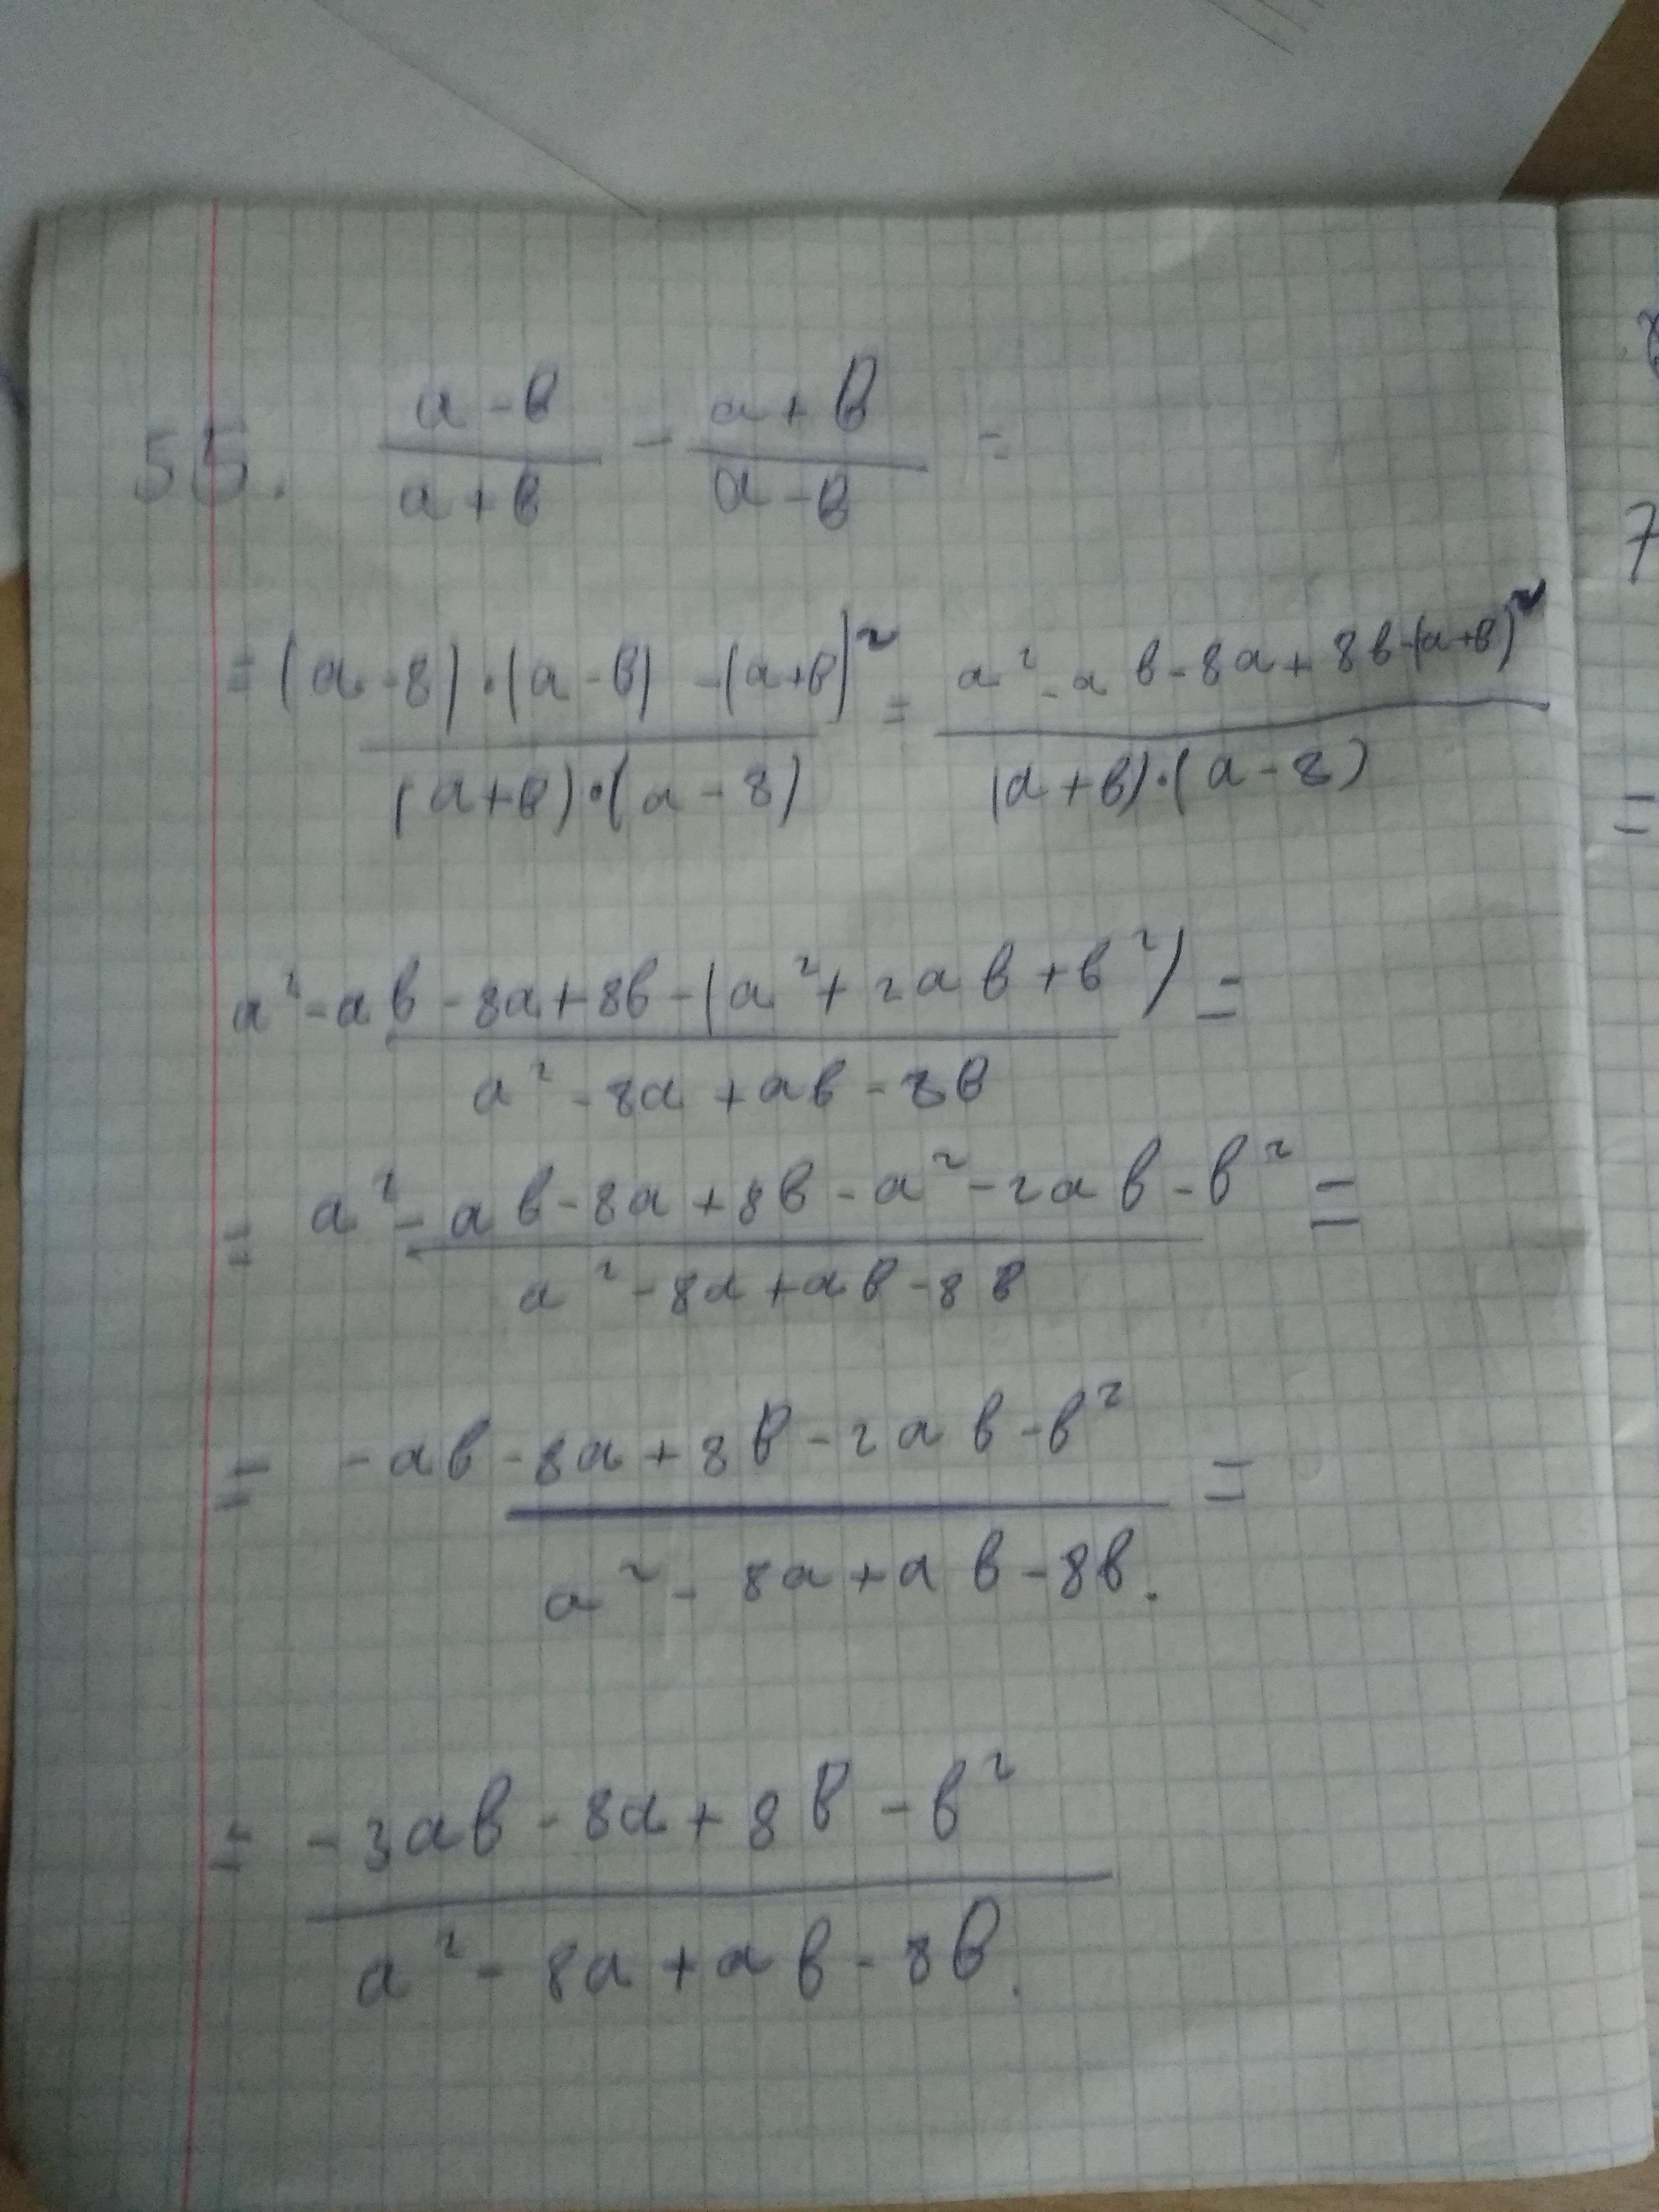 55. (a-в)/(a+в) - (a+в)/(a-в) =
= ((a-8)·(a-в)-(a+в)²)/((a+в)·(a-8)) = (a²-aв-8a+8в-(a+в)²)/((a+в)·(a-8))
(a²-aв-8a+8в-(a²+2aв+в²))/(a²-8a+aв-8в) =
= (a²-aв-8a+8в-a²-2aв-в²)/(a²-8a+aв-8в) =
= (-aв-8a+8в-2aв-в²)/(a²-8a+aв-8в.) =
= (-3aв-8a+8в-в²)/(a²-8a+aв-8в.)
7
=